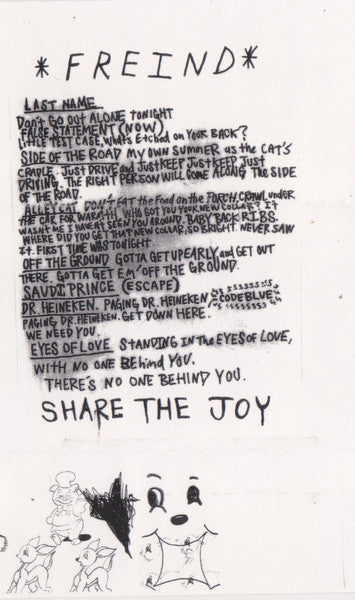 *FREIND*
LAST NAME
Don't GO OUT ALONE TONIGHT
FALSE STATEMENT (NOW)
LITTLE TEST CASE, WHATS ETCHED ON YOUR BACK?
SIDE OF THE ROAD MY OWN SUMMER as the CAT'S
CRADLE. JUST DRIVE and JUST KEEP JUST KEEP JUST
DRIVING. THE RIGHT PERSON WILL COME ALONG THE SIDE
OF THE ROAD.
ALLEYCAT DON'T EAT the Food on the PORCH. CRAWL under
THE CAR FOR WARMTH WHO GOT YOU YOUR NEW COLLAR? IT
WASNT ME I HAVENT SEEN YOU AROUND. BABY BACK RIBS.
WHERE DID YOU GET THAT NEW COLLAR, SO BRIGHT. NEVER SAW
IT. FIRST TIME WAS TONIGHT.
OFF THE GROUND GOTTA GET UP EARLY and GET OUT
THERE. GOTTA GET EM OFF THE GROUND.
SAUDI PRINCE (ESCAPE)
DR. HEINEKEN. PAGING DR. HEINEKEN CODE BLUE
PAGING DR. HEINEKEN. GET DOWN HERE.
WE NEED YOU.
EYES OF LOVE STANDING IN The EYES OF LOVE,
WITH NO ONE BEHIND YOU.
THERE'S NO ONE BEHIND YOU.
SHARE THE JOY